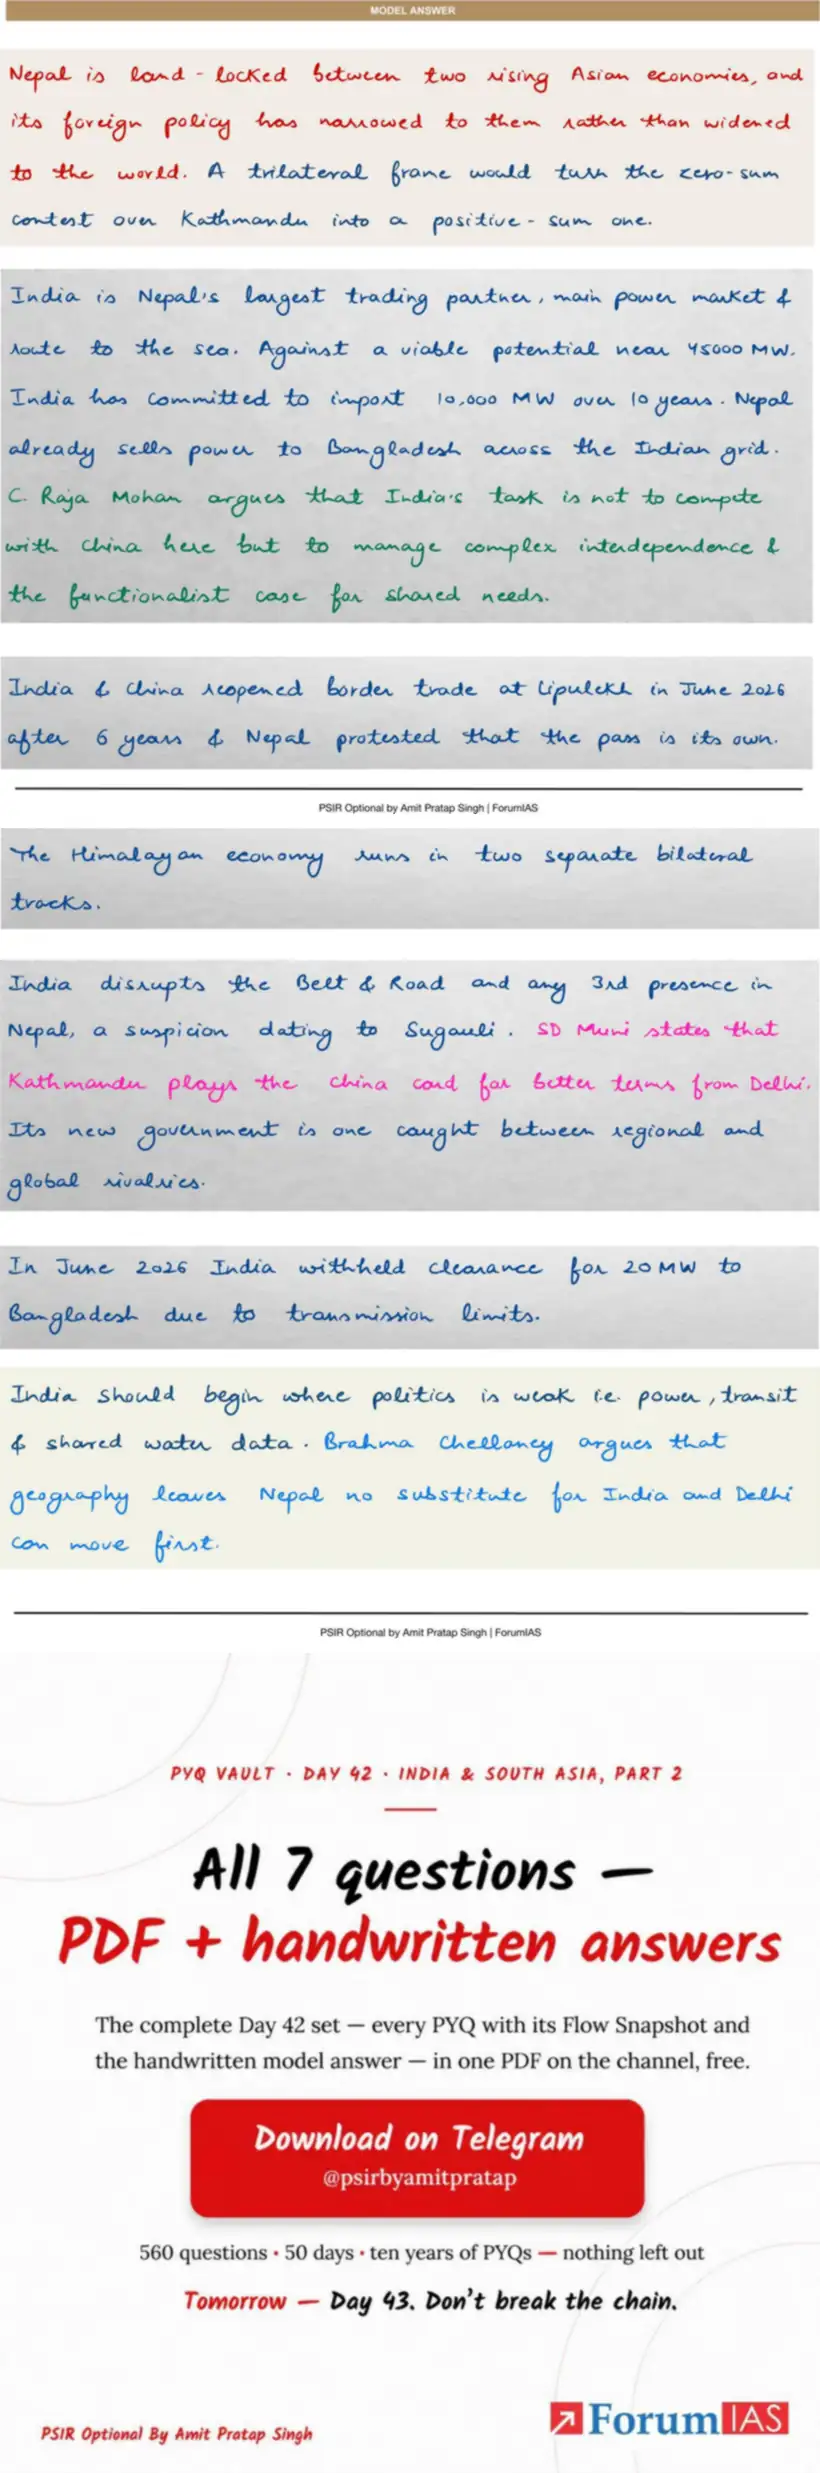 MODEL ANSWER
Nepal is land-locked between two rising Asian economies, and
its foreign policy has narrowed to them rather than widened
to the world. A trilateral frame would turn the zero-sum
contest over Kathmandu into a positive-sum one.
India is Nepal's largest trading partner, main power market &
route to the sea. Against a viable potential near 45000 MW.
India has committed to import 10,000 MW over 10 years. Nepal
already sells power to Bangladesh across the Indian grid.
C. Raja Mohan argues that India's task is not to compete
with China here but to manage complex interdependence &
the functionalist case for shared needs.
India & China reopened border trade at Lipulekh in June 2026
after 6 years & Nepal protested that the pass is its own.
PSIR Optional by Amit Pratap Singh | ForumIAS
The Himalayan economy runs in two separate bilateral
tracks.
India disrupts the Belt & Road and any 3rd presence in
Nepal, a suspicion dating to Sugauli. SD Muni states that
Kathmandu plays the China card for better terms from Delhi.
Its new government is one caught between regional and
global rivalries.
In June 2026 India withheld clearance for 20 MW to
Bangladesh due to transmission limits.
India should begin where politics is weak i.e. power, transit
& shared water data. Brahma Chellaney argues that
geography leaves Nepal no substitute for India and Delhi
can move first.
PSIR Optional by Amit Pratap Singh | ForumIAS
PYQ VAULT · DAY 42 · INDIA & SOUTH ASIA, PART 2
All 7 questions —
PDF + handwritten answers
The complete Day 42 set — every PYQ with its Flow Snapshot and
the handwritten model answer — in one PDF on the channel, free.
Download on Telegram
@psirbyamitpratap
560 questions · 50 days · ten years of PYQs — nothing left out
Tomorrow — Day 43. Don't break the chain.
PSIR Optional By Amit Pratap Singh
ForumIAS